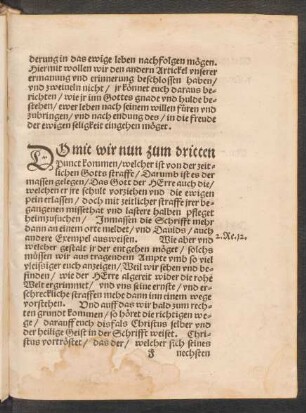 derung in das ewige leben nachfolgen mögen.
Hiermit wollen wir den andern Artickel vnserer
ermanung vnd erinnerung beschlossen haben/
vnd zweiueln nicht/ jr könnet euch daraus be-
richten/ wie jr inn Gottes gnade vnd hulde be-
stehen/ ewer leben nach seinem willen füren vnd
zubringen/ vnd nach endung des/ in die freude
der ewigen seligkeit eingehen möget.
DOmit wir nun zum dritten
Punct kommen/ welcher ist von der zeit-
lichen Gotts straffe/ Darumb ist es der
massen gelegen/ Das Gott der HErre auch die/
welchen er jre schult vorziehen vnd die ewigen
pein erlassen/ doch mit zeitlicher straffe jrer be-
gangenen missethat vnd lasters halben pfleget
heimzusuchen/ Inmassen die Schrifft mehr
dann an einem orte meldet/ vnd Dauids/ auch
andere Exempel ausweisen. Wie aber vnd
welcher gestalt jr der entgehen möget/ solchs
müssen wir aus tragendem Ampte vmb so viel
vleissiger euch anzeigen/ Weil wir sehen vnd be-
finden/ wie der HErre algereit wider die rohe
Welt ergrimmet/ vnd vns seine ernste/ vnd er-
schreckliche straffen mehr dann inn einem wege
vorstehen. Vnd auff das wir bald zum rech-
ten grundt kommen/ so höret die richtigen we-
ge/ darauff euch disfals Christus selber vnd
der heilige Geist in der Schrifft weiset. Chri-
stus vortröstet/ das der/ welcher sich seinen
2. Re. 12.
nechsten